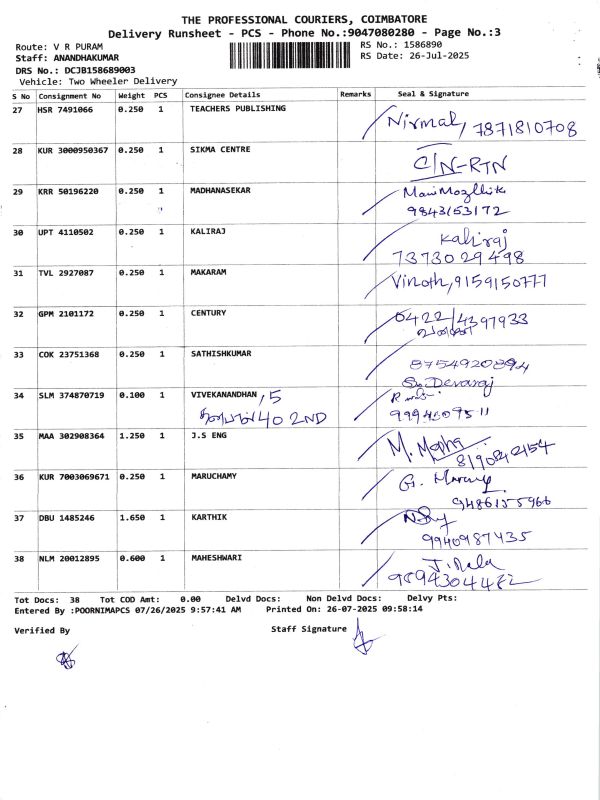 THE PROFESSIONAL COURIERS, COIMBATORE
Delivery Runsheet - PCS - Phone No.:9047080280 - Page No.:3
Route: V R PURAM RS No.: 1586890
Staff: ANANDHAKUMAR RS Date: 26-Jul-2025
DRS No.: DCJB158689003
Vehicle: Two Wheeler Delivery
S No Consignment No Weight PCS Consignee Details Remarks Seal & Signature
27 HSR 7491066 0.250 1 TEACHERS PUBLISHING
Nirmal, 7871810708
28 KUR 3000950367 0.250 1 SIKMA CENTRE
C/N-RTN
29 KRR 50196220 0.250 1 MADHANASEKAR
9843153172
30 UPT 4110502 0.250 1 KALIRAJ
Kaliraj
7373029498
31 TVL 2927087 0.250 1 MAKARAM
Vinoth, 9159150777
32 GPM 2101172 0.250 1 CENTURY
0422/4397933
33 COK 23751368 0.250 1 SATHISHKUMAR
8754920894
Devaraj
34 SLM 374870719 0.100 1 VIVEKANANDHAN, 5
40 2ND
35 MAA 302908364 1.250 1 J.S ENG
M.
36 KUR 7003069671 0.250 1 MARUCHAMY
G.
9486155966
37 DBU 1485246 1.650 1 KARTHIK
9940987435
38 NLM 20012895 0.600 1 MAHESHWARI
J. Mala
Tot Docs: 38 Tot COD Amt: 0.00 Delvd Docs: Non Delvd Docs: Delvy Pts:
Entered By :POORNIMAPCS 07/26/2025 9:57:41 AM Printed On: 26-07-2025 09:58:14
Verified By Staff Signature